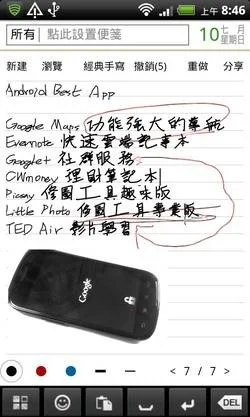 上午 8:46
所有 點此設置便箋 10 七月 星期日
新建 瀏覽 經典手寫 撤銷(5) 重做 分享
Android Best App
Google Maps 功能強大的導航
Evernote 快速雲端記事本
Google+ 社群服務
CWmoney 理財筆記本
Picsay 修圖工具趣味版
Little Photo 修圖工具專業版
TED Air 影片學習
Google
< 7 / 7 >
DEL